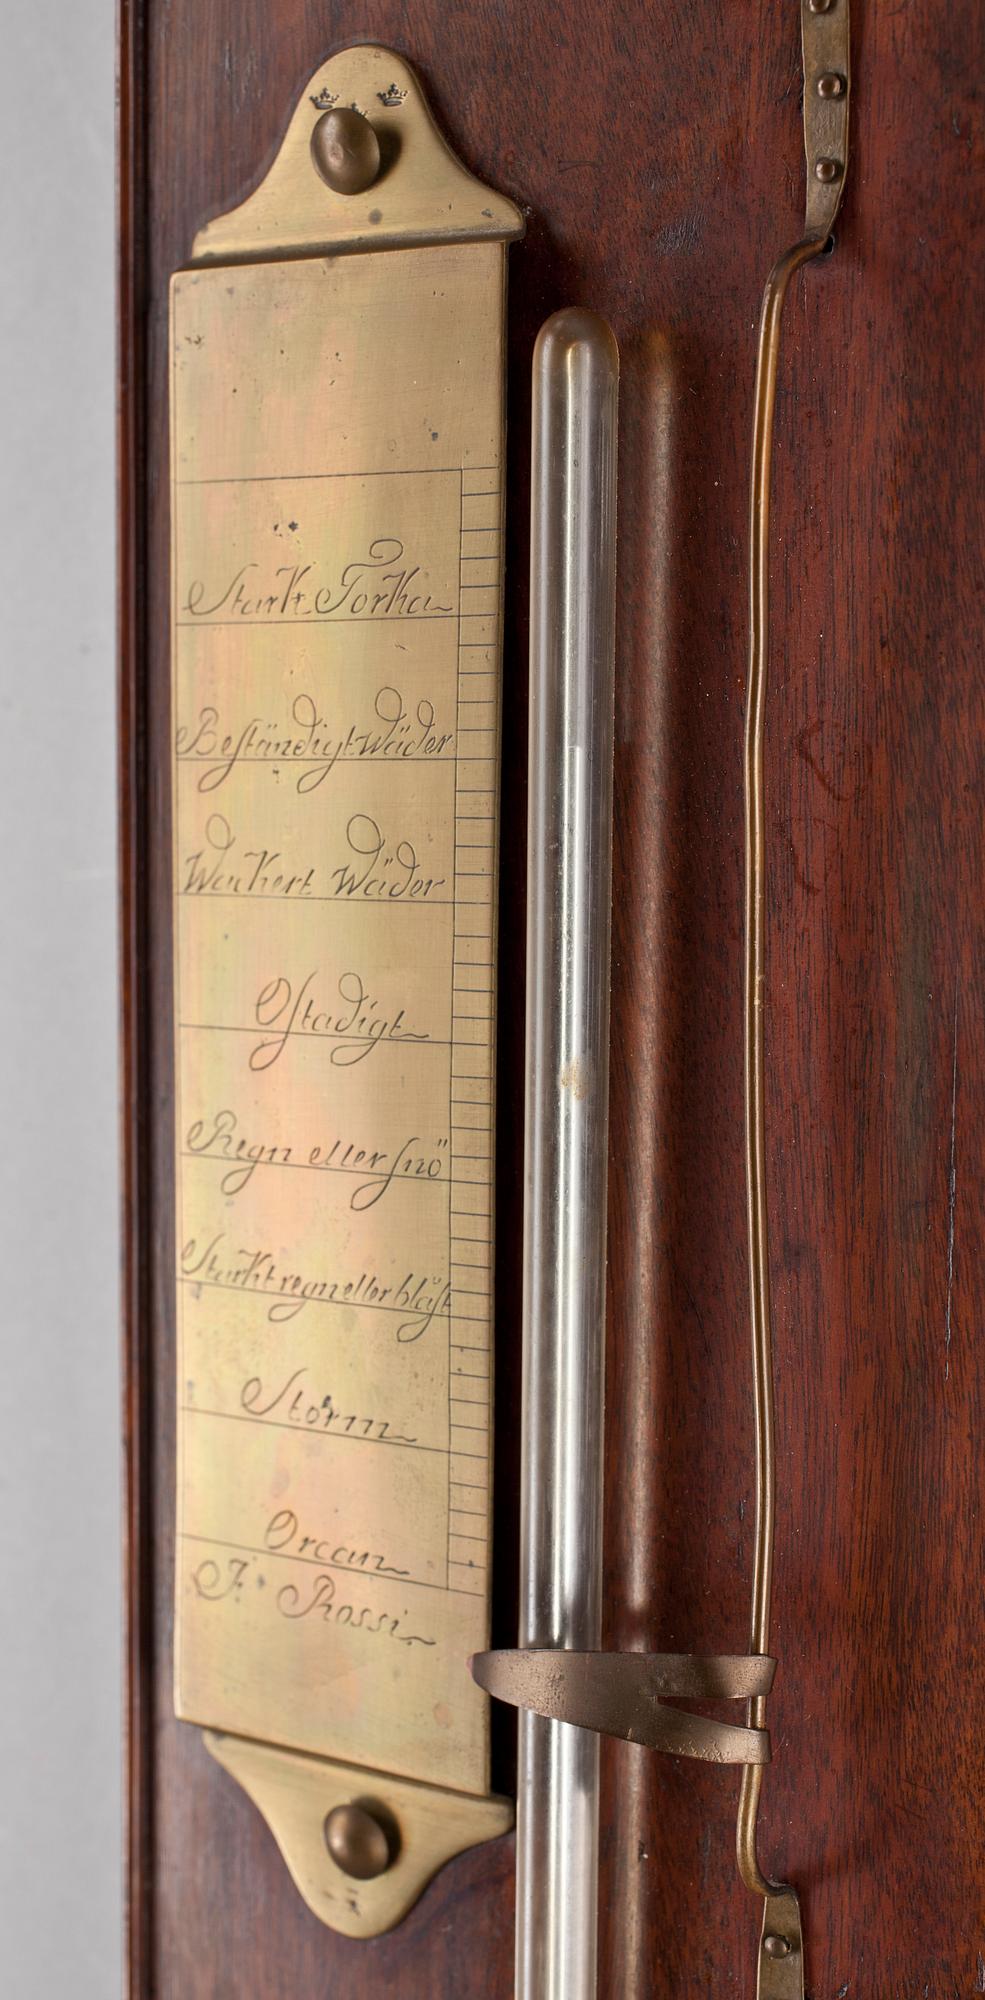 Stark Torka
Beständigt Wäder
Wackert Wäder
Ostadigt
Regn eller snö
Starkt regn eller blåst
Storm
Orcan
J. Rossi